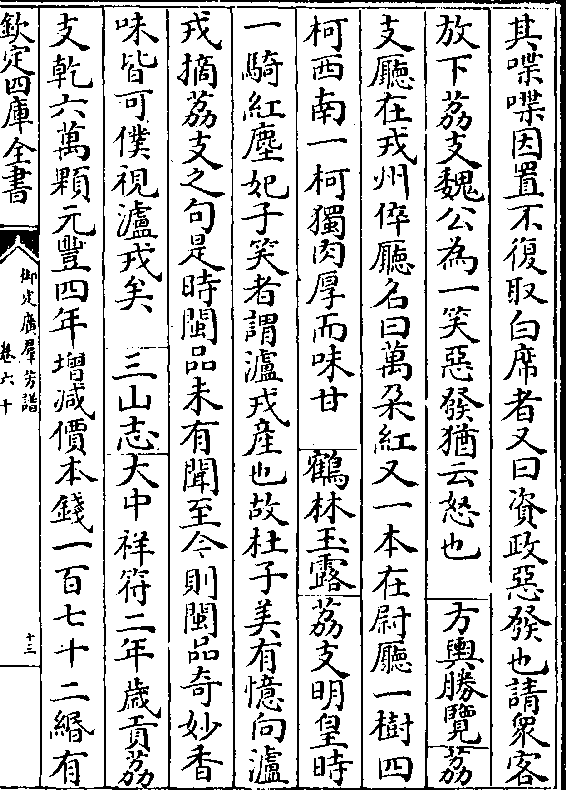 其喋喋因置不復取白席者又曰資政惡發也請衆客
放下荔支魏公為一笑惡發猶云怒也　方輿勝覽荔
支廳在戎州倅廳名曰萬朶紅又一本在尉廳一樹四
柯西南一柯獨肉厚而味甘　鶴林玉露荔支明皇時
一騎紅塵妃子笑者謂瀘戎産也故杜子美有憶向瀘
戎摘荔支之句是時閩品未有聞至今則閩品奇妙香
味皆可僕視瀘戎矣　三山志大中祥符二年歳貢荔
支乾六萬顆元豐四年增减價本錢一百七十二緡有
欽定四庫全書
御定廣羣芳譜
卷六十
十三